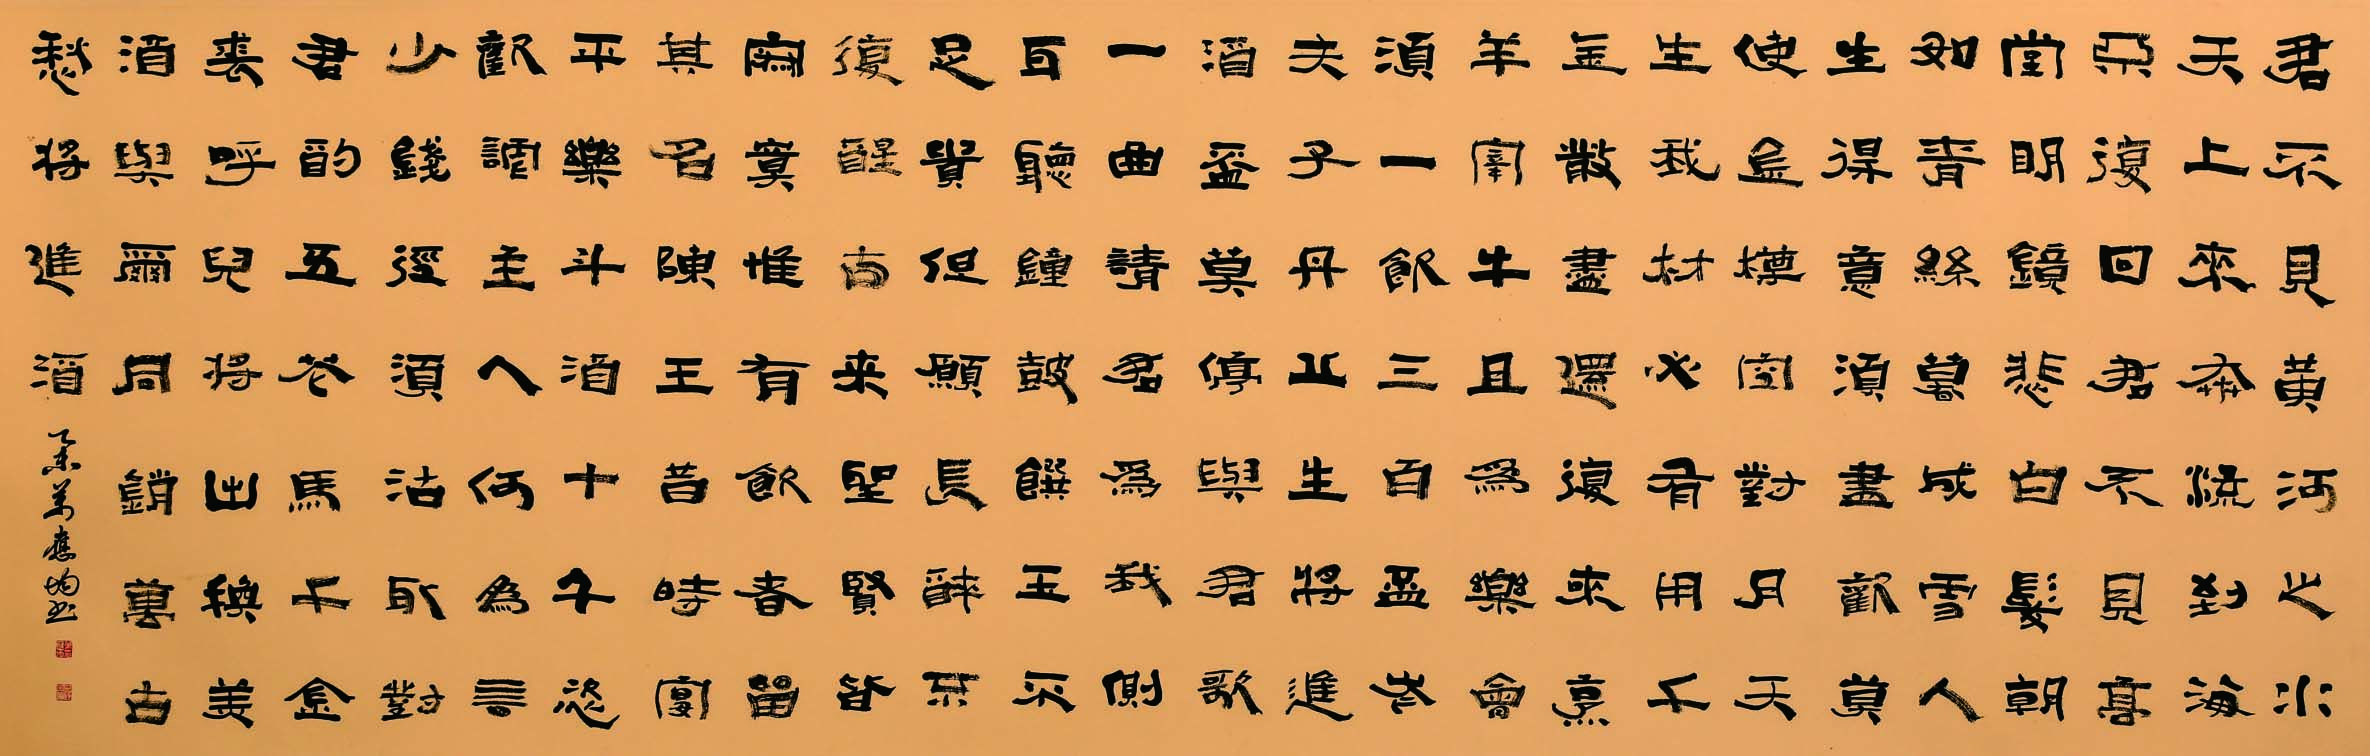 君不見黃河之水
天上來奔流到海
不復回君不見高
堂明鏡悲白髮朝
如青絲暮成雪人
生得意須盡歡莫
使金樽空對月天
生我材必有用千
金散盡還復來烹
羊宰牛且為樂會
須一飲三百盃岑
夫子丹丘生將進
酒盃莫停與君歌
一曲請君為我側
耳聽鐘鼓饌玉不
足貴但願長醉不
復醒古来聖賢皆
寂寞惟有飲者留
其名陳王昔時宴
平樂斗酒十千恣
歡謔主人何為言
少錢徑須沽取對
君酌五花馬千金
裘呼兒將出換美
酒與爾同銷萬古
愁將進酒
乙未萬應均书